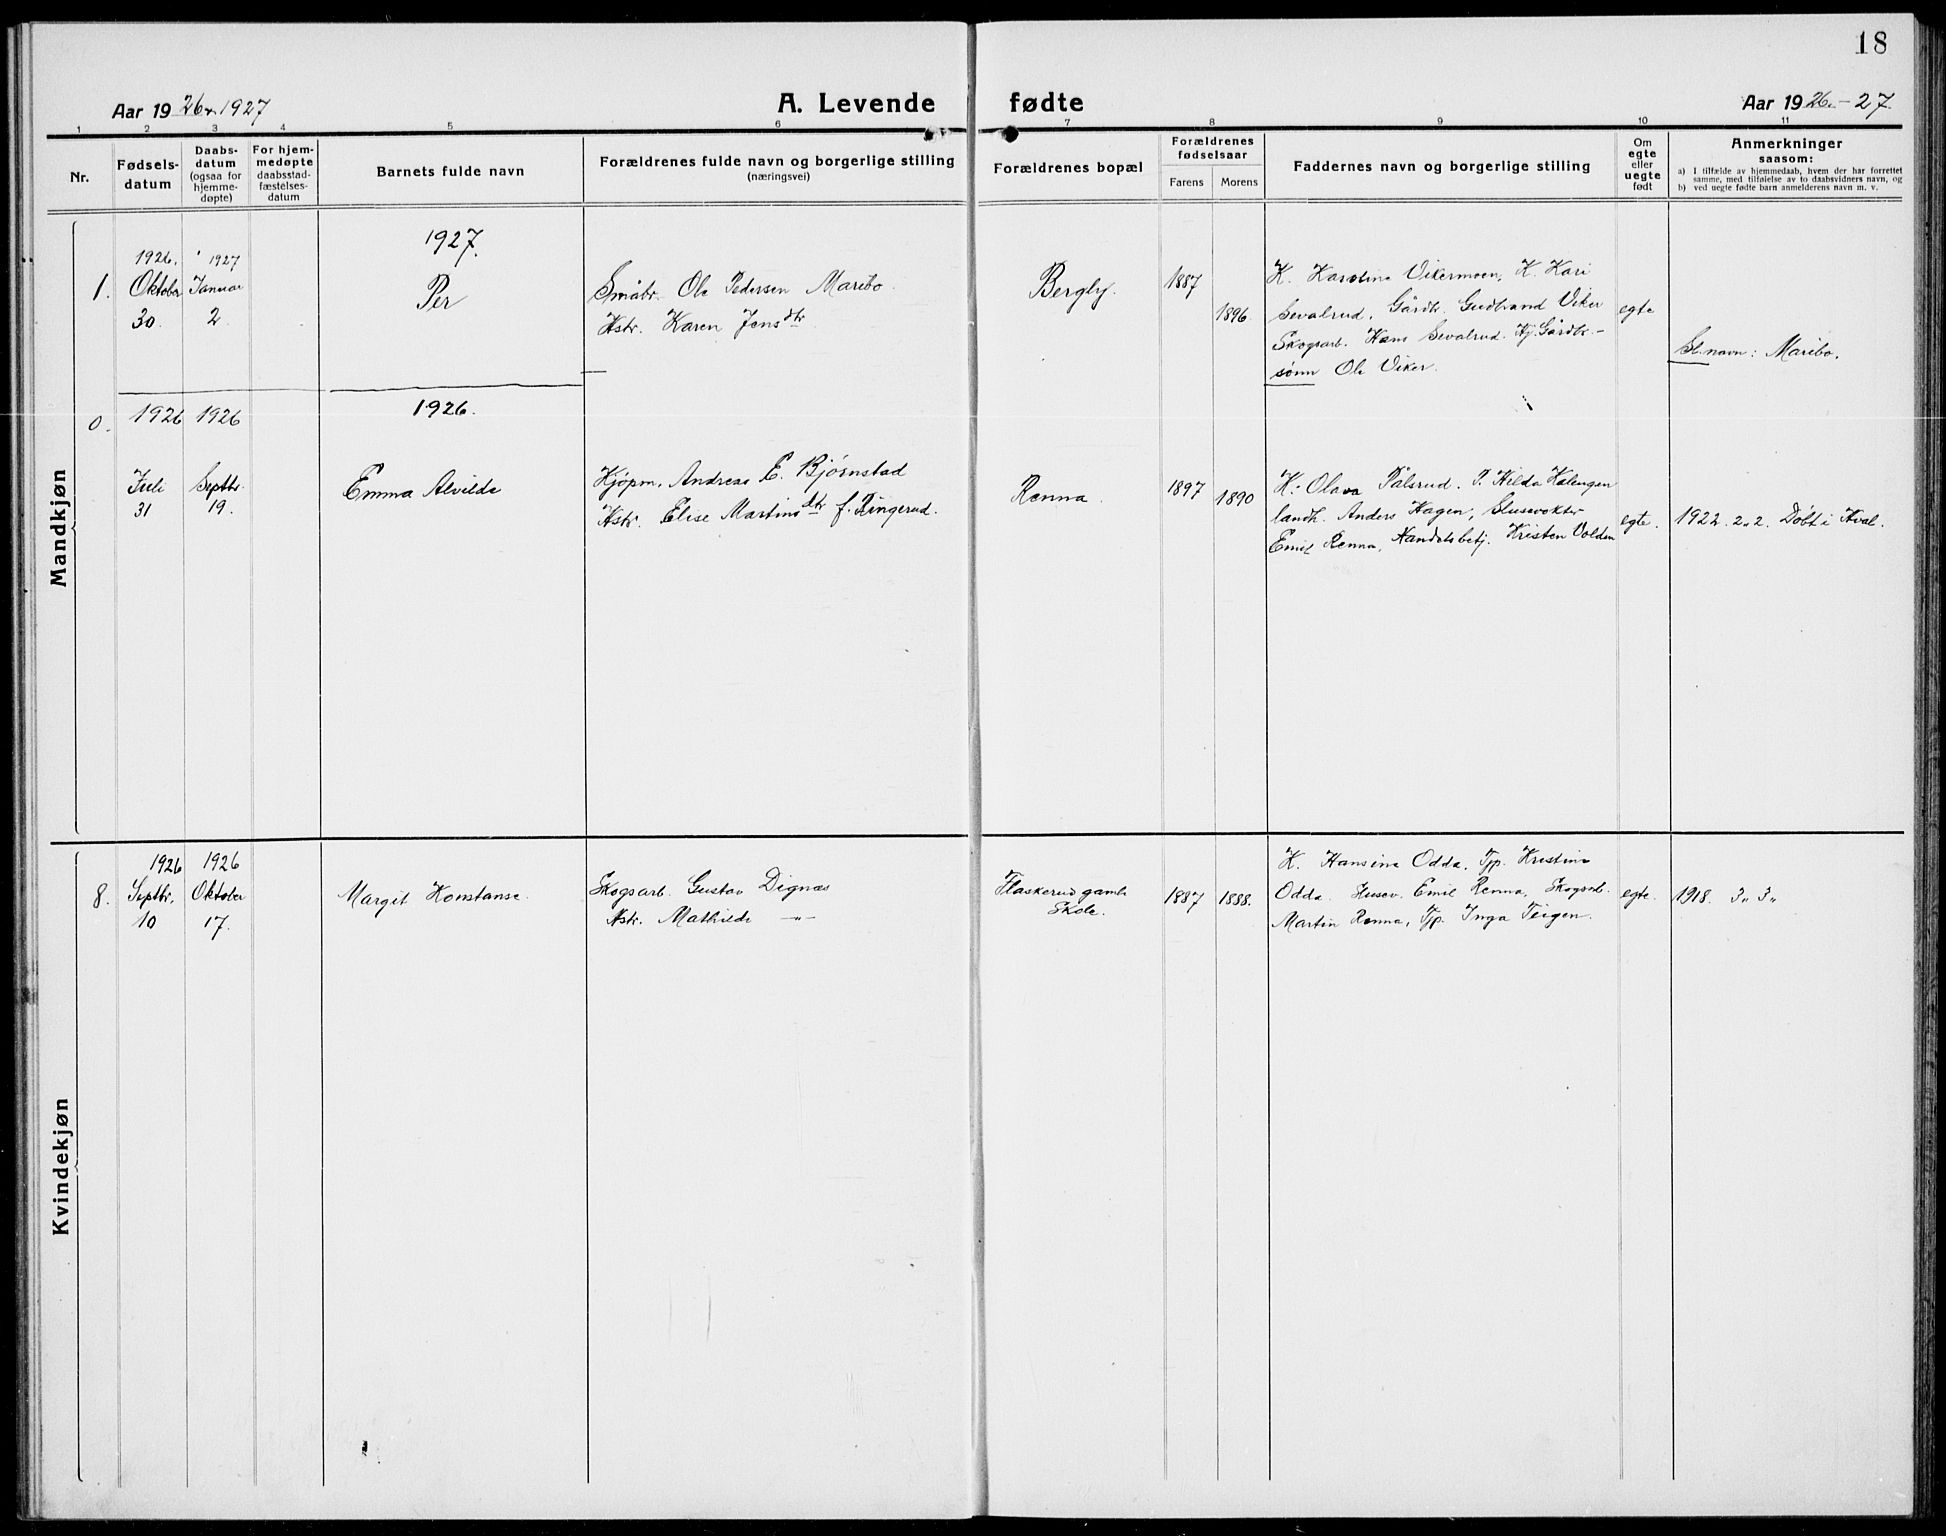 18
Aar 1926 & 1927
A. Levende fødte
Aar 1926.-27.
1 2 3 4 5 6 7 8 9 10 11
Nr.
Fødsels-
datum
Daabs-
datum
(ogsaa for
hjemme-
døpte)
For hjem-
medøpte
daabsstad-
fæstelses-
datum
Barnets fulde navn
Forældrenes fulde navn og borgerlige stilling
(næringsvei)
Forældrenes bopæl
Forældrenes
fødselsaar
Farens Morens
Faddernes navn og borgerlige stilling
Om
egte
eller
uegte
født
Anmerkninger
saasom:
a) I tilfælde av hjemmedaab, hvem der har forrettet
samme, med tilføielse av to daabsvidners navn, og
b) ved uegte fødte barn anmelderens navn m. v.
Mandkjøn
1927.
1.
1926.
Oktober
30.
1927
Januar
2.
Per
Småbr. Ole Pedersen Maribo.
Hstr. Karen Jensdtr
Bergly.
1887
1896.
K. Karoline Vikermoen, K. Kari
Sevalrud, Gårdbr. Gudbrand Viker
Skogsarb. Hans Sevalrud. Hj. Gårdbr.-
sønn Ole Viker.
egte
Sl.navn: Maribo.
1926.
0.
1926
Juli
31
1926
Septbr.
19.
Emma Alvilde
Kjøpm. Andreas E. Bjørnstad
Hstr. Elise Martinsdtr f. Ringerud.
Renna.
1897
1890
K. Olava Pålsrud. P. Hilda Halengen
landh. Anders Hagen, Slusevokter
Emil Renna, Handelsbetj. Kristen Volden
egte.
1922. 2.. 2. Døbt i Hval.
Kvindekjøn
8.
1926
Septbr.
10
1926
Oktober
17.
Margit Konstanse.
Skogsarb. Gustav Dignæs
Hstr. Mathilde -"-
Flaskerud gamle
Skole.
1887
1888.
K. Hansine Odda, Tjp. Kristine
Odda. Husev. Emil Renna, Skogsarb.
Martin Renna, Tjp. Inga Teigen.
egte.
1918. 3.. 3..